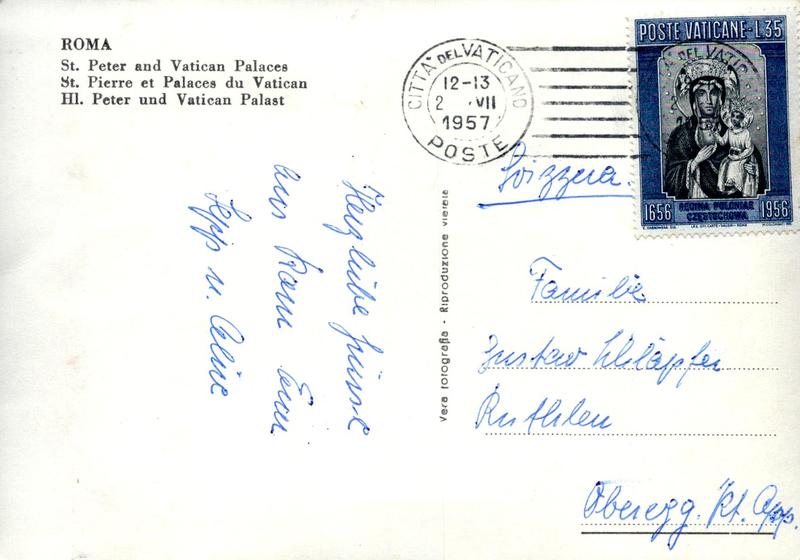 ROMA
St. Peter and Vatican Palaces
St. Pierre et Palaces du Vatican
Hl. Peter und Vatican Palast
CITTA' DEL VATICANO
12-13
2 .VII
1957
POSTE
POSTE VATICANE-L.35
REGINA POLONIAE
CZĘSTOCHOWA
1656 1956
Svizzera.
Herzliche Grüsse
aus Rom Eure
Sepp u. Celine
Vera fotografia - Riproduzione vietata
Familie
Gustav Schläpfer
Ruthlen
Oberegg. Kt. App.